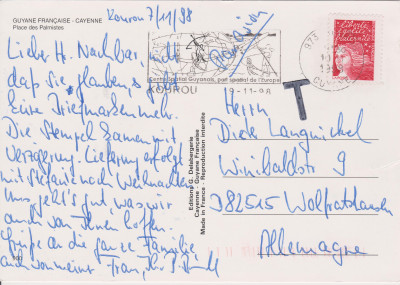 GUYANE FRANÇAISE - CAYENNE
Place des Palmistes
Kourou 7/11/98
Par avion
Lieber H. Nachbar, nicht
daß Sie glauben es
Eine Briefmarken
Die Stempel kamen mit
Verzögerung. Lieferung erfolgt
mit Stefanie nach Weihnachten
Uns geht's gut was wir
auch von Ihnen hoffen.
Grüße an die ganze Familie,
auch von meiner Frau, Ihr
Centre Spatial Guyanais, port spatial de l'Europe
KOUROU
9-11-98
973
LA POSTE
T
Editions G. Delabergerie
Cayenne - Guyane Française
Made in France - Reproduction interdite
Herrn
Dieter Langnickel
Winibaldstr 9
D82515 Wolfratshausen
Allemagne